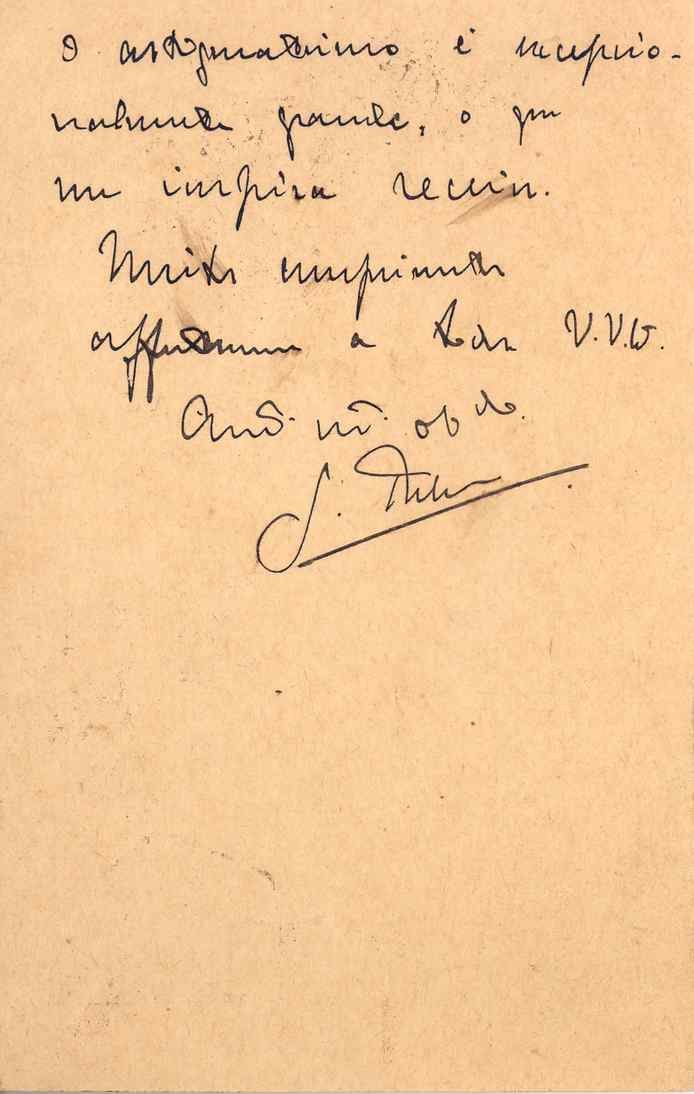 O astigmatismo é excepcio-
nalmente grande, o que
me inspira receio.
Muitos cumprimentos
affectuosos a todos V.V.
Am.º m.º ob.do